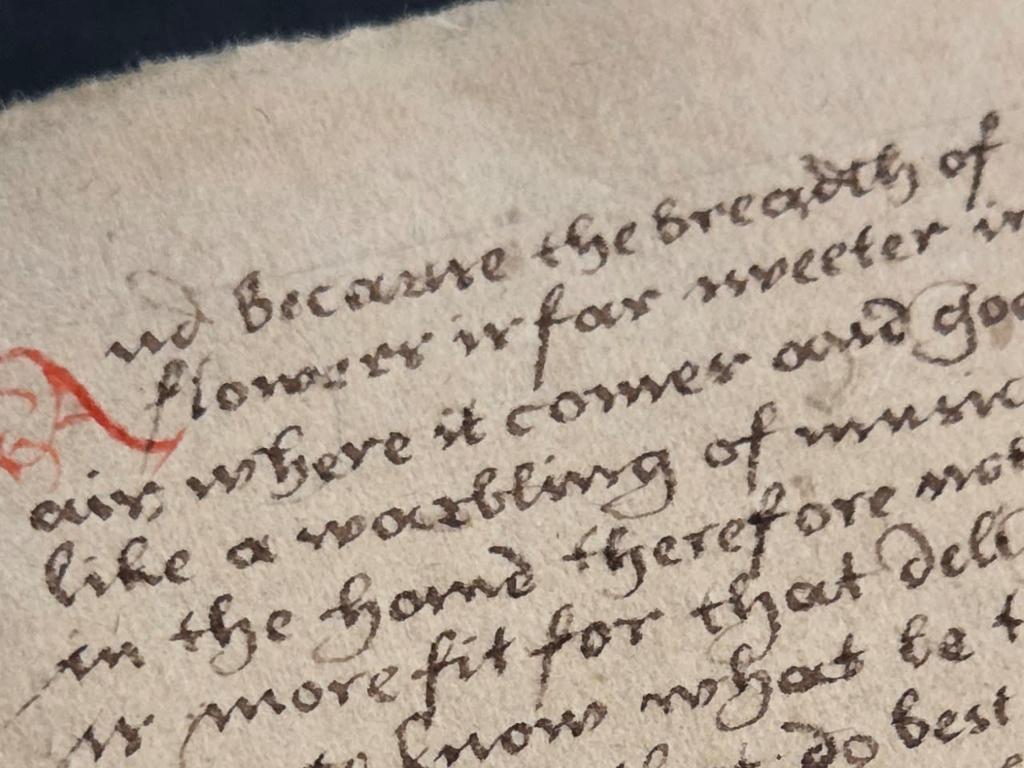 And because the breadth of
flowers is far sweeter in
air where it comes and
like a warbling of music
in the hand therefore
is more fit for that
to know what be
do best